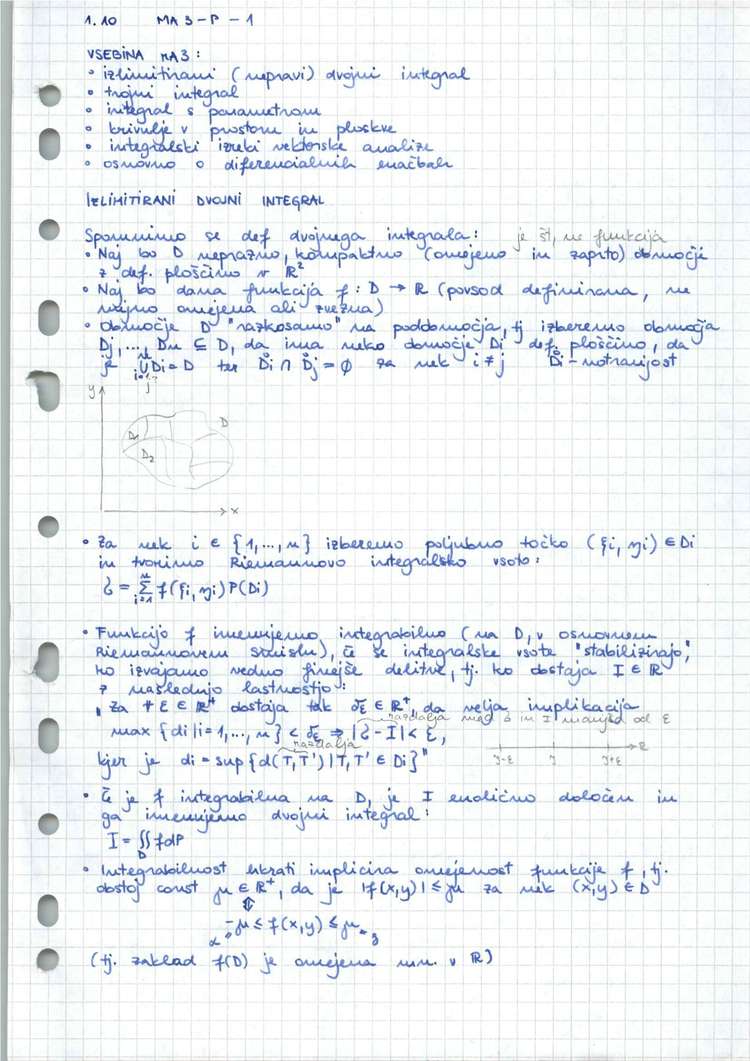 1.10 MA 3 - P - 1
VSEBINA MA3:
• izlimitirani (nepravi) dvojni integral
• trojni integral
• integral s parametrom
• krivulje v prostoru in ploskve
• integralski izreki vektorske analize
• osnovno o diferencialnih enačbah
IZLIMITIRANI DVOJNI INTEGRAL
Spomnimo se def dvojnega integrala: je št, ne funkcija
• Naj bo D neprazno, kompaktno (omejeno in zaprto) območje
z def. ploščino v R²
• Naj bo dana funkcija f: D → R (povsod definirana, ne
nujno omejena ali zvezna)
• Območje D "razkosamo" na poddomočja, tj izberemo območja
Dj, ..., Dn ⊆ D, da ima neko domočje Di def. ploščino, da
je ⋃ Di = D ter D̊i ∩ D̊j = ∅ za nek i ≠ j D̊i - notranjost
y
D
D1
D2
x
• Za nek i ∈ {1, ..., n} izberemo poljubno točko (ξi, ηi) ∈ Di
in tvorimo Riemannovo integralsko vsoto:
σ = Σ f(ξi, ηi) P(Di)
• Funkcijo f imenujemo integrabilno (na D, v osnovnem
Riemannovem smislu), če se integralske vsote "stabilizirajo",
ko izvajamo vedno finejše delitve, tj. ko obstaja I ∈ R
z naslednjo lastnostjo:
"Za ∀ ε ∈ R⁺ obstaja tak δε ∈ R⁺, da velja implikacija
razdalja med σ in I manjša od ε
max {di | i = 1, ..., n} < δε ⇒ |σ - I| < ε,
razdalja
kjer je di = sup {d(T, T') | T, T' ∈ Di}"
I-ε I I+ε
• Če je f integrabilna na D, je I enolično določen in
ga imenujemo dvojni integral:
I = ∬ f dP
D
• Integrabilnost hkrati implicira omejenost funkcije f, tj.
obstoj const μ ∈ R⁺, da je |f(x,y)| ≤ μ za nek (x,y) ∈ D
⇕
-μ ≤ f(x,y) ≤ μ
(tj. zaklad f(D) je omejena mn. v R)